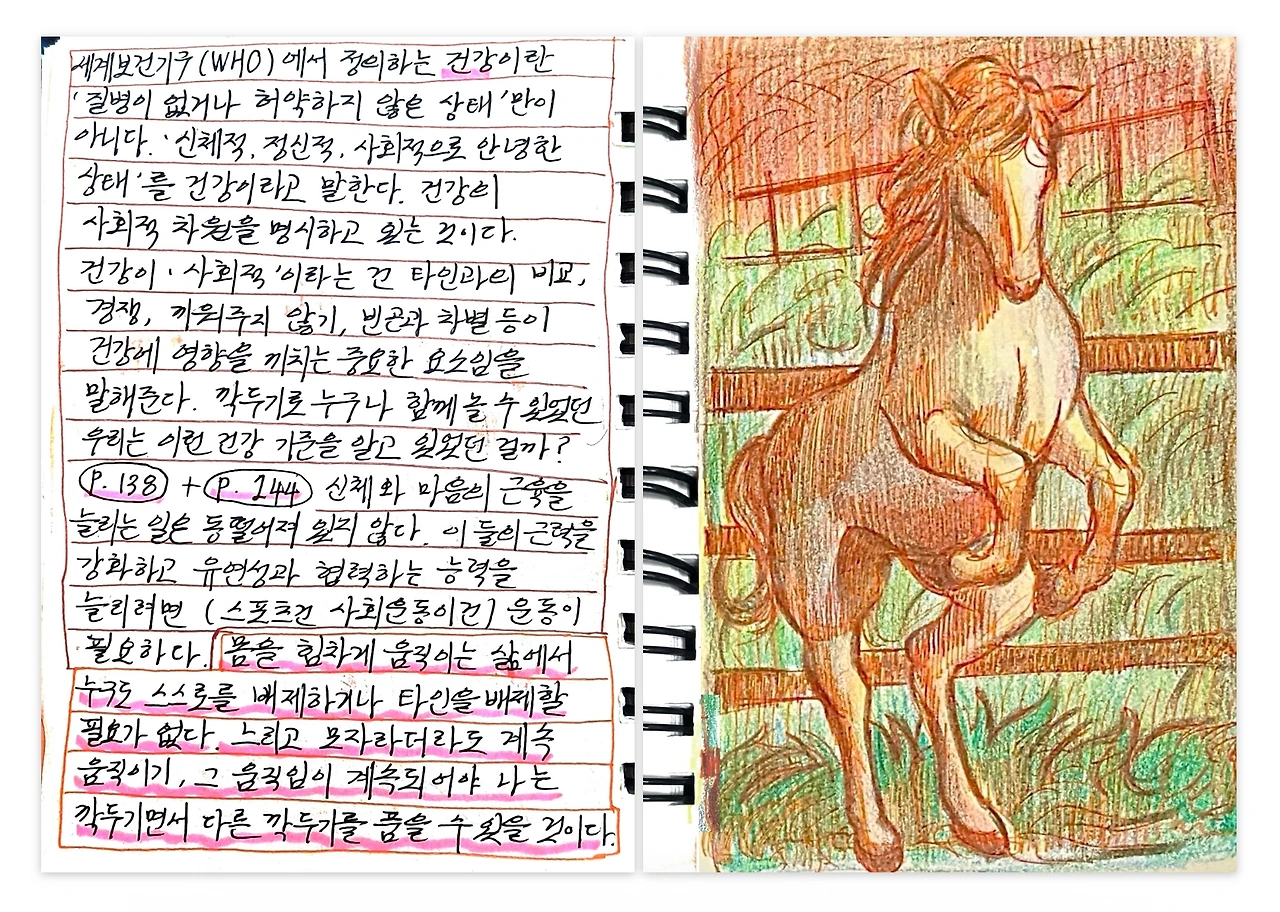 세계보건기구(WHO)에서 정의하는 건강이란
'질병이 없거나 허약하지 않은 상태'만이
아니다. '신체적, 정신적, 사회적으로 안녕한
상태'를 건강이라고 말한다. 건강의
사회적 차원을 명시하고 있는 것이다.
건강이 '사회적'이라는 건 타인과의 비교,
경쟁, 끼워주지 않기, 빈곤과 차별 등이
건강에 영향을 끼치는 중요한 요소임을
말해준다. 깍두기로 누구나 함께 놀 수 있었던
우리는 이런 건강 기준을 알고 있었던 걸까?
P.138 + P.244 신체와 마음의 근육을
늘리는 일은 동떨어져 있지 않다. 이들의 근력을
강화하고 유연성과 협력하는 능력을
늘리려면 (스포츠건 사회운동이건) 운동이
필요하다. 몸을 힘차게 움직이는 삶에서
누구도 스스로를 배제하거나 타인을 배제할
필요가 없다. 느리고 모자라더라도 계속
움직이기, 그 움직임이 계속되어야 나는
깍두기면서 다른 깍두기를 품을 수 있을 것이다.